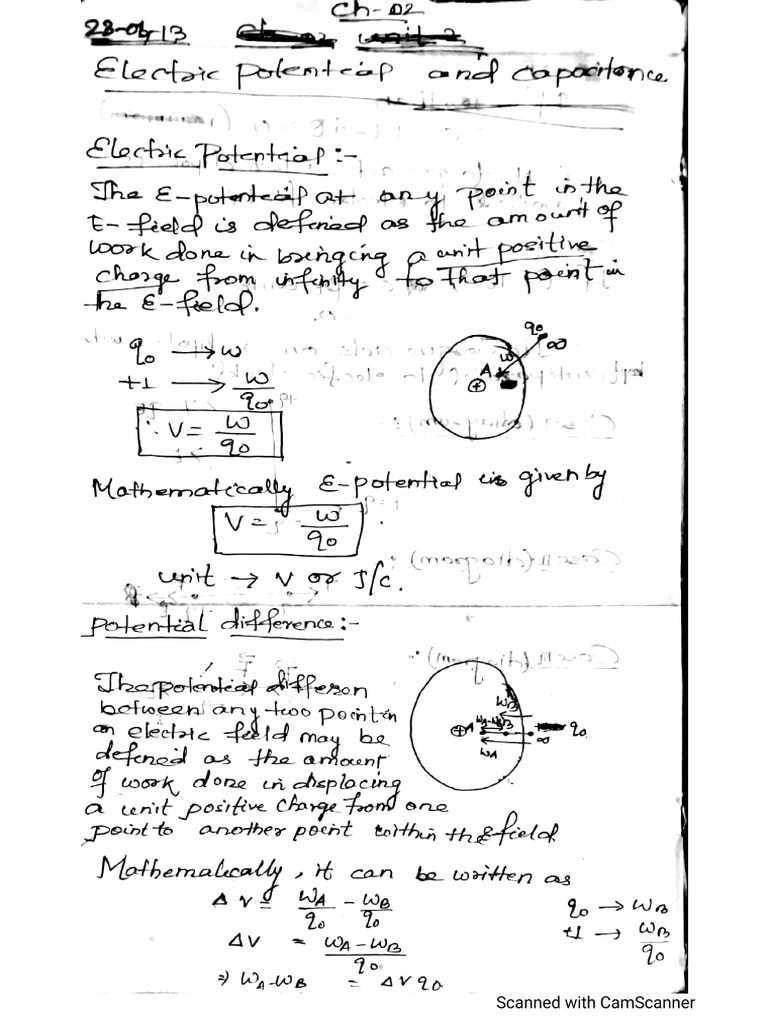 Ch-02
28-06-13
Electric potential and capacitance
Electric Potential :-
The E-potential at any point in the
E-field is defined as the amount of
work done in bringing a unit positive
charge from infinity to that point in
the E-field.
q0 → W
+1 → W/q0
∴ V = W/q0
q0
∞
W
A
+
Mathematically E-potential is given by
V = W/q0
unit → V or J/C.
Potential difference :-
The potential differen
between any two point in
an electric field may be
defined as the amount
of work done in displacing
a unit positive charge from one
point to another point within the E field.
WB
+ A WA-WB q0
∞
WA
Mathematically, it can be written as
ΔV = WA/q0 - WB/q0
q0 → WB
ΔV = WA-WB/q0
+1 → WB/q0
⇒ WA-WB = ΔV q0
Scanned with CamScanner